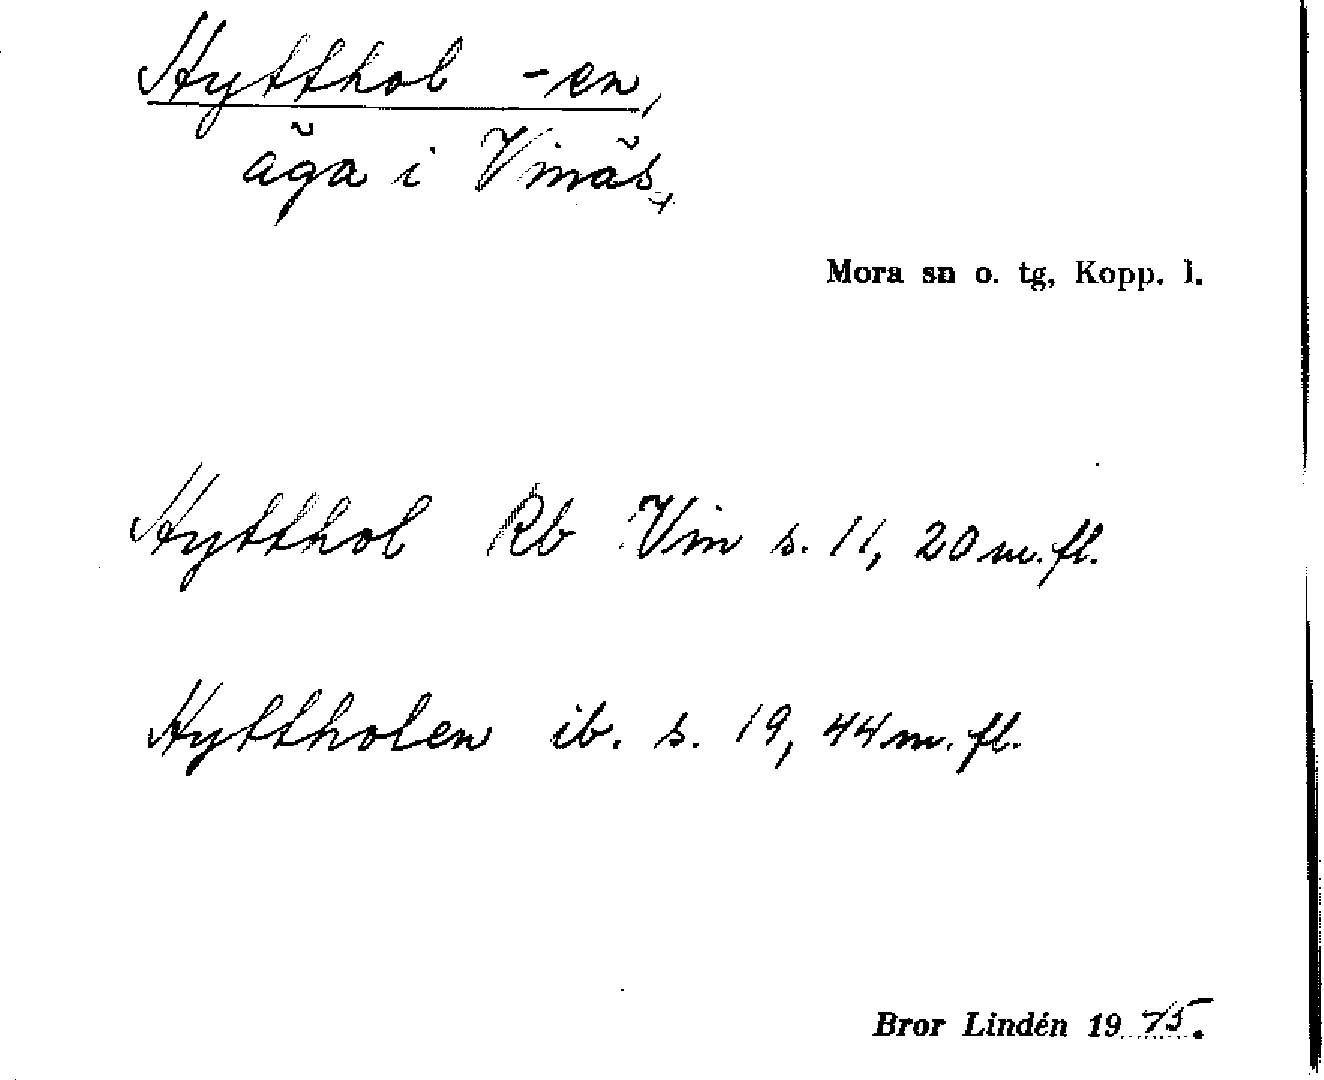 Hytthol -en,
äga i Vinäs,
Mora sn o. tg, Kopp. l.
Hytthol Rb Vin s. 11, 20 m. fl.
Hyttholen ib. s. 19, 44 m. fl.
Bror Lindén 1975.